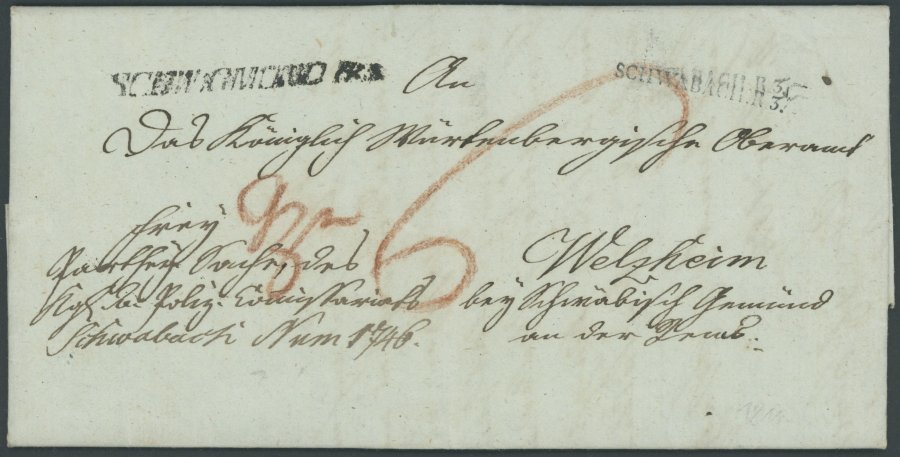 SCHWABACH. R. 3.
SCHWABACH. R. 3.
An
Das Königlich Würtenbergische Oberamt
frey
Parthey Sache, des
Kgl. ba. Poliz. Comissariats
Schwabach Num 1746.
6
Welzheim
bey Schwäbisch Gemünd
an der Rems.